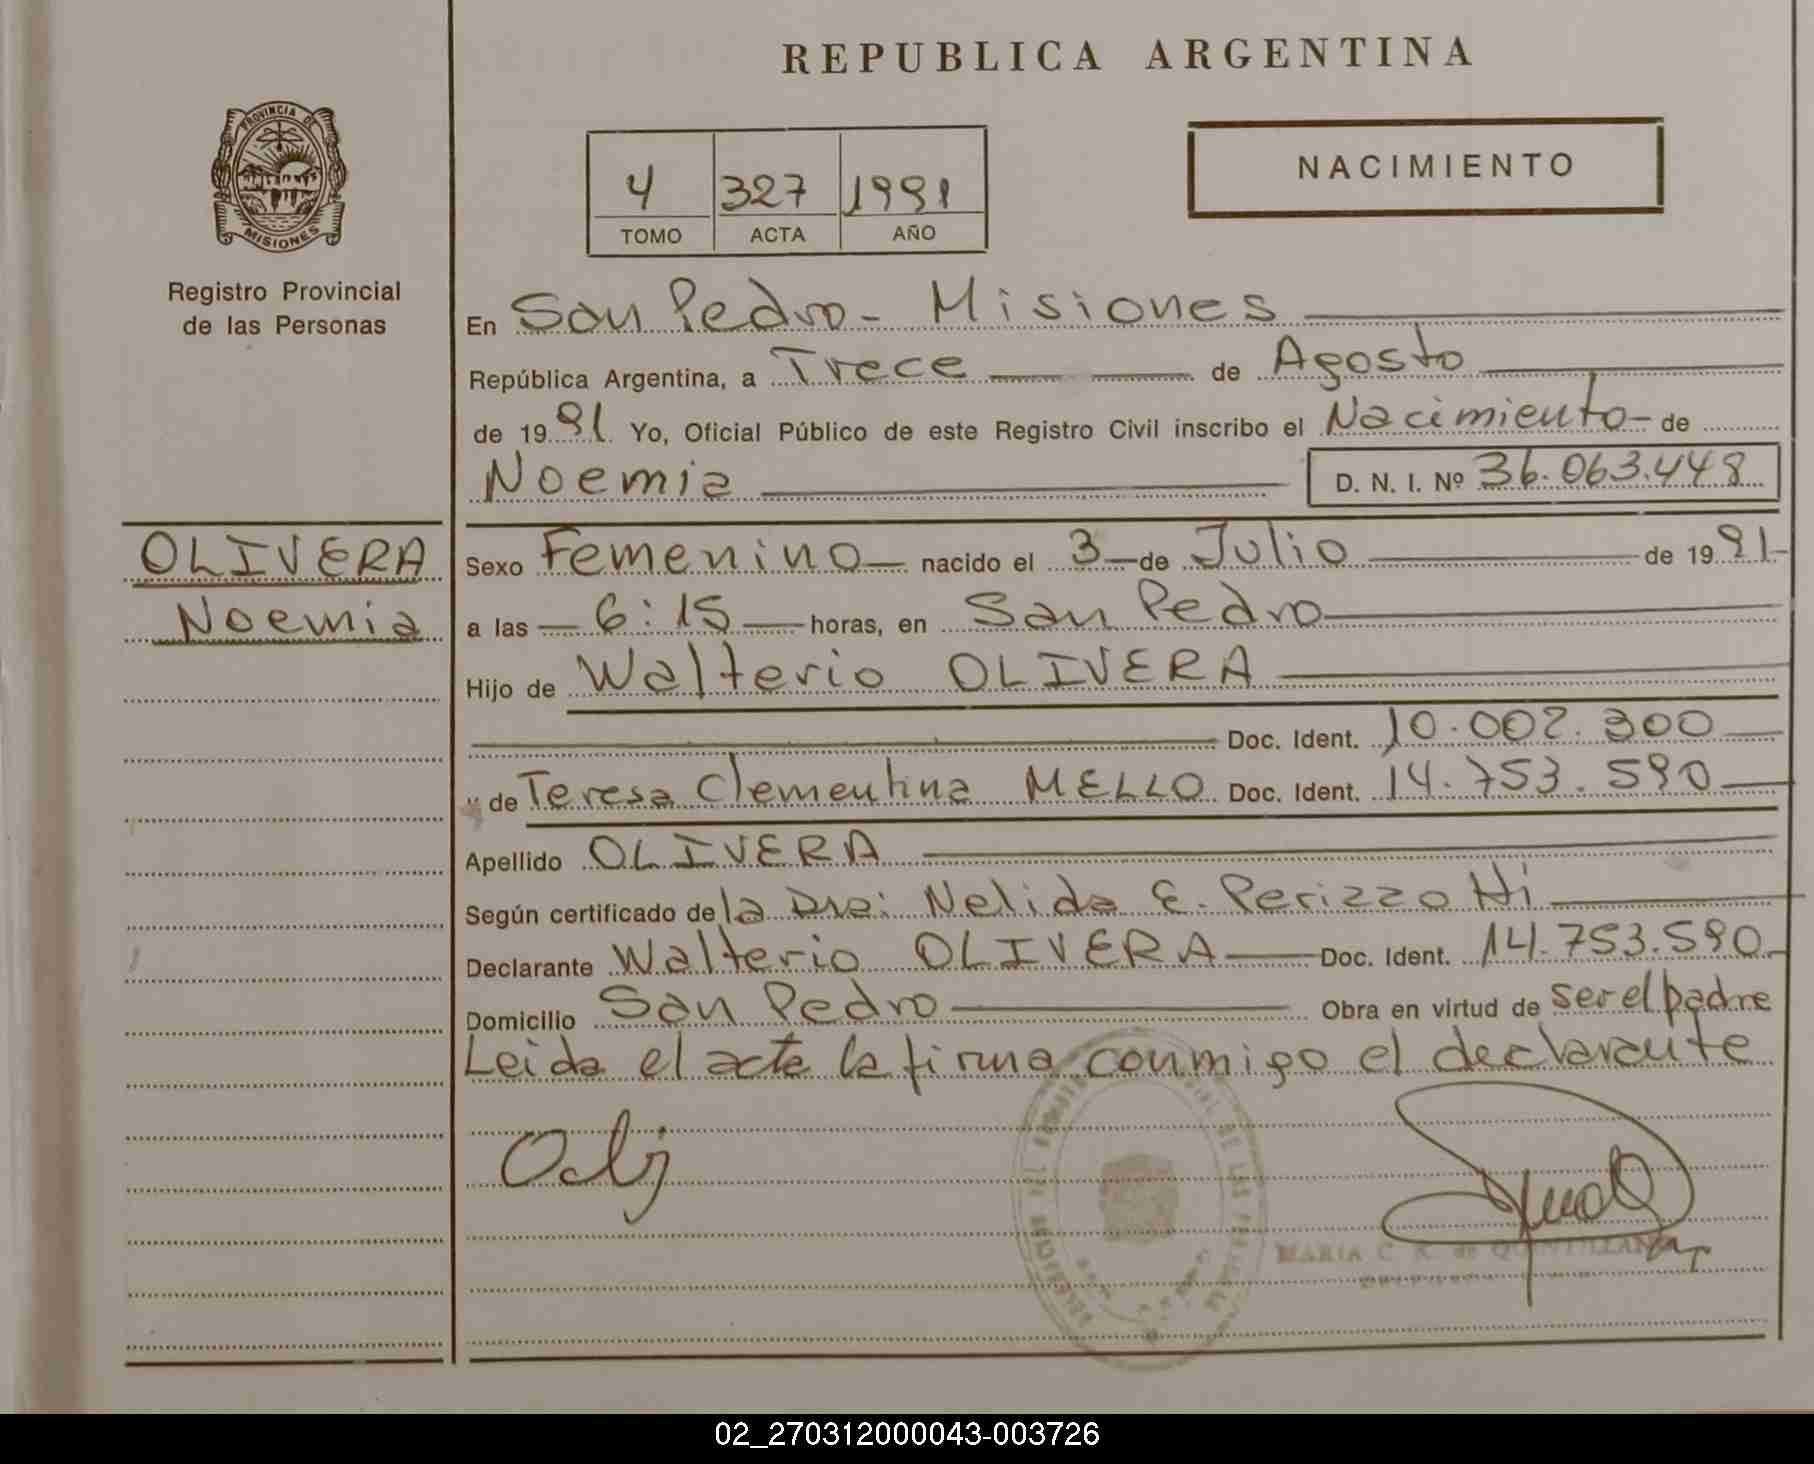 REPUBLICA ARGENTINA
PROVINCIA DE
MISIONES
Registro Provincial
de las Personas
4 327 1991
TOMO ACTA AÑO
NACIMIENTO
En San Pedro - Misiones
República Argentina, a Trece de Agosto
de 1991. Yo, Oficial Público de este Registro Civil inscribo el Nacimiento - de
Noemia D. N. I. Nº 36.063.448
OLIVERA
Noemia
Sexo Femenino nacido el 3 de Julio de 1991
a las 6:15 horas, en San Pedro
Hijo de Walterio OLIVERA
Doc. Ident. 10.002.300
y de Teresa Clementina MELLO Doc. Ident. 14.753.590
Apellido OLIVERA
Según certificado de la Dra: Nelida E. Perizzotti
Declarante Walterio OLIVERA Doc. Ident. 14.753.590
Domicilio San Pedro Obra en virtud de ser el padre
Leida el acta la firma conmigo el declarante
MARIA C. K. de QUINTILLAN
02_270312000043-003726